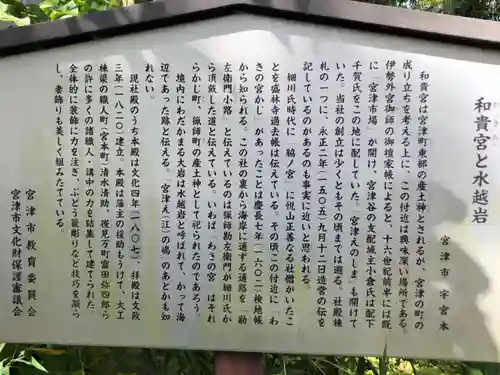 和貴宮と水越岩
宮津市字宮本
和貴宮は宮津町東部の産土神とされるが、宮津の町の
成り立ちを考える上に、この付近は興味深い場所である。
伊勢外宮御師の御檀家帳によると、十六世紀前半には既
に「宮津市場」が開け、宮津谷の支配城主小倉氏は配下
千賀氏をこの地に配していた。宮津えのしま、も開けて
いた。当社の創立は少くともその頃までは遡る。社殿棟
札の一つに、永正二年(一五〇五)九月十二日造営の伝を
記しているのがあるのも事実に近いと思われる。
細川氏時代に「脇ノ宮」に悦山正善なる社僧がいたこ
とを盛林寺過去帳は伝えている。その頃この付近に「わ
きの宮かし」があったことは慶長七年(一六〇二)検地帳
から知られる。この社の裏から海岸に通ずる通路を「勘
左衛門小路」と伝えているのは猟師勘左衛門が細川氏か
ら頂戴した道と伝えている。いわば「わきの宮」はそれ
らかじ町、猟師町の産土神として祀られたのであろう。
境内にわだかまる大岩は水越岩と呼ばれて、かつて海
辺であった跡と伝える。宮津え(江)の嶋のあとかも知
れない。
現社殿のうち本殿は文化四年(一八〇七)、拝殿は文政
三年(一八二〇)建立。本殿は藩主の援助もうけて、大工
棟梁の職人町(宮本町)清水清助、後見万町冨田弥四郎ら
の許に多くの諸職人、講中の力を結集して建てられた。
全体的に装飾に力を注ぎ、ぶどう籠彫りなど技巧を凝ら
し、妻飾りも美しく組みたてている。
宮津市教育委員会
宮津市文化財保護審議会